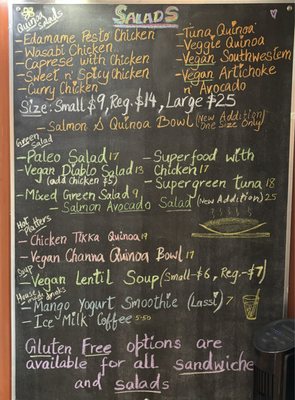 SALADS
Quinoa Salads
- Edamame Pesto Chicken
- Wasabi Chicken
- Caprese with Chicken
- Sweet n' Spicy Chicken
- Curry Chicken
- Tuna Quinoa
- Veggie Quinoa
- Vegan Southwestern
- Vegan Artichoke
n' Avocado
Size: Small $9, Reg. $14, Large $25
- Salmon & Quinoa Bowl (New Addition)
One Size Only
Green Salad
- Paleo Salad 17
- Vegan Diablo Salad 13
(add Chicken $5)
- Mixed Green Salad 9
- Superfood with
Chicken 17
- Supergreen Tuna 18
- Salmon Avocado Salad (New Addition) 25
Hot Platters
- Chicken Tikka Quinoa 19
- Vegan Channa Quinoa Bowl 17
Soup
- Vegan Lentil Soup (Small-$6, Reg.-$7)
House made drinks
- Mango Yogurt Smoothie (Lassi) 7
- Ice Milk Coffee 5.50
Gluten Free options are
available for all sandwiche
and salads